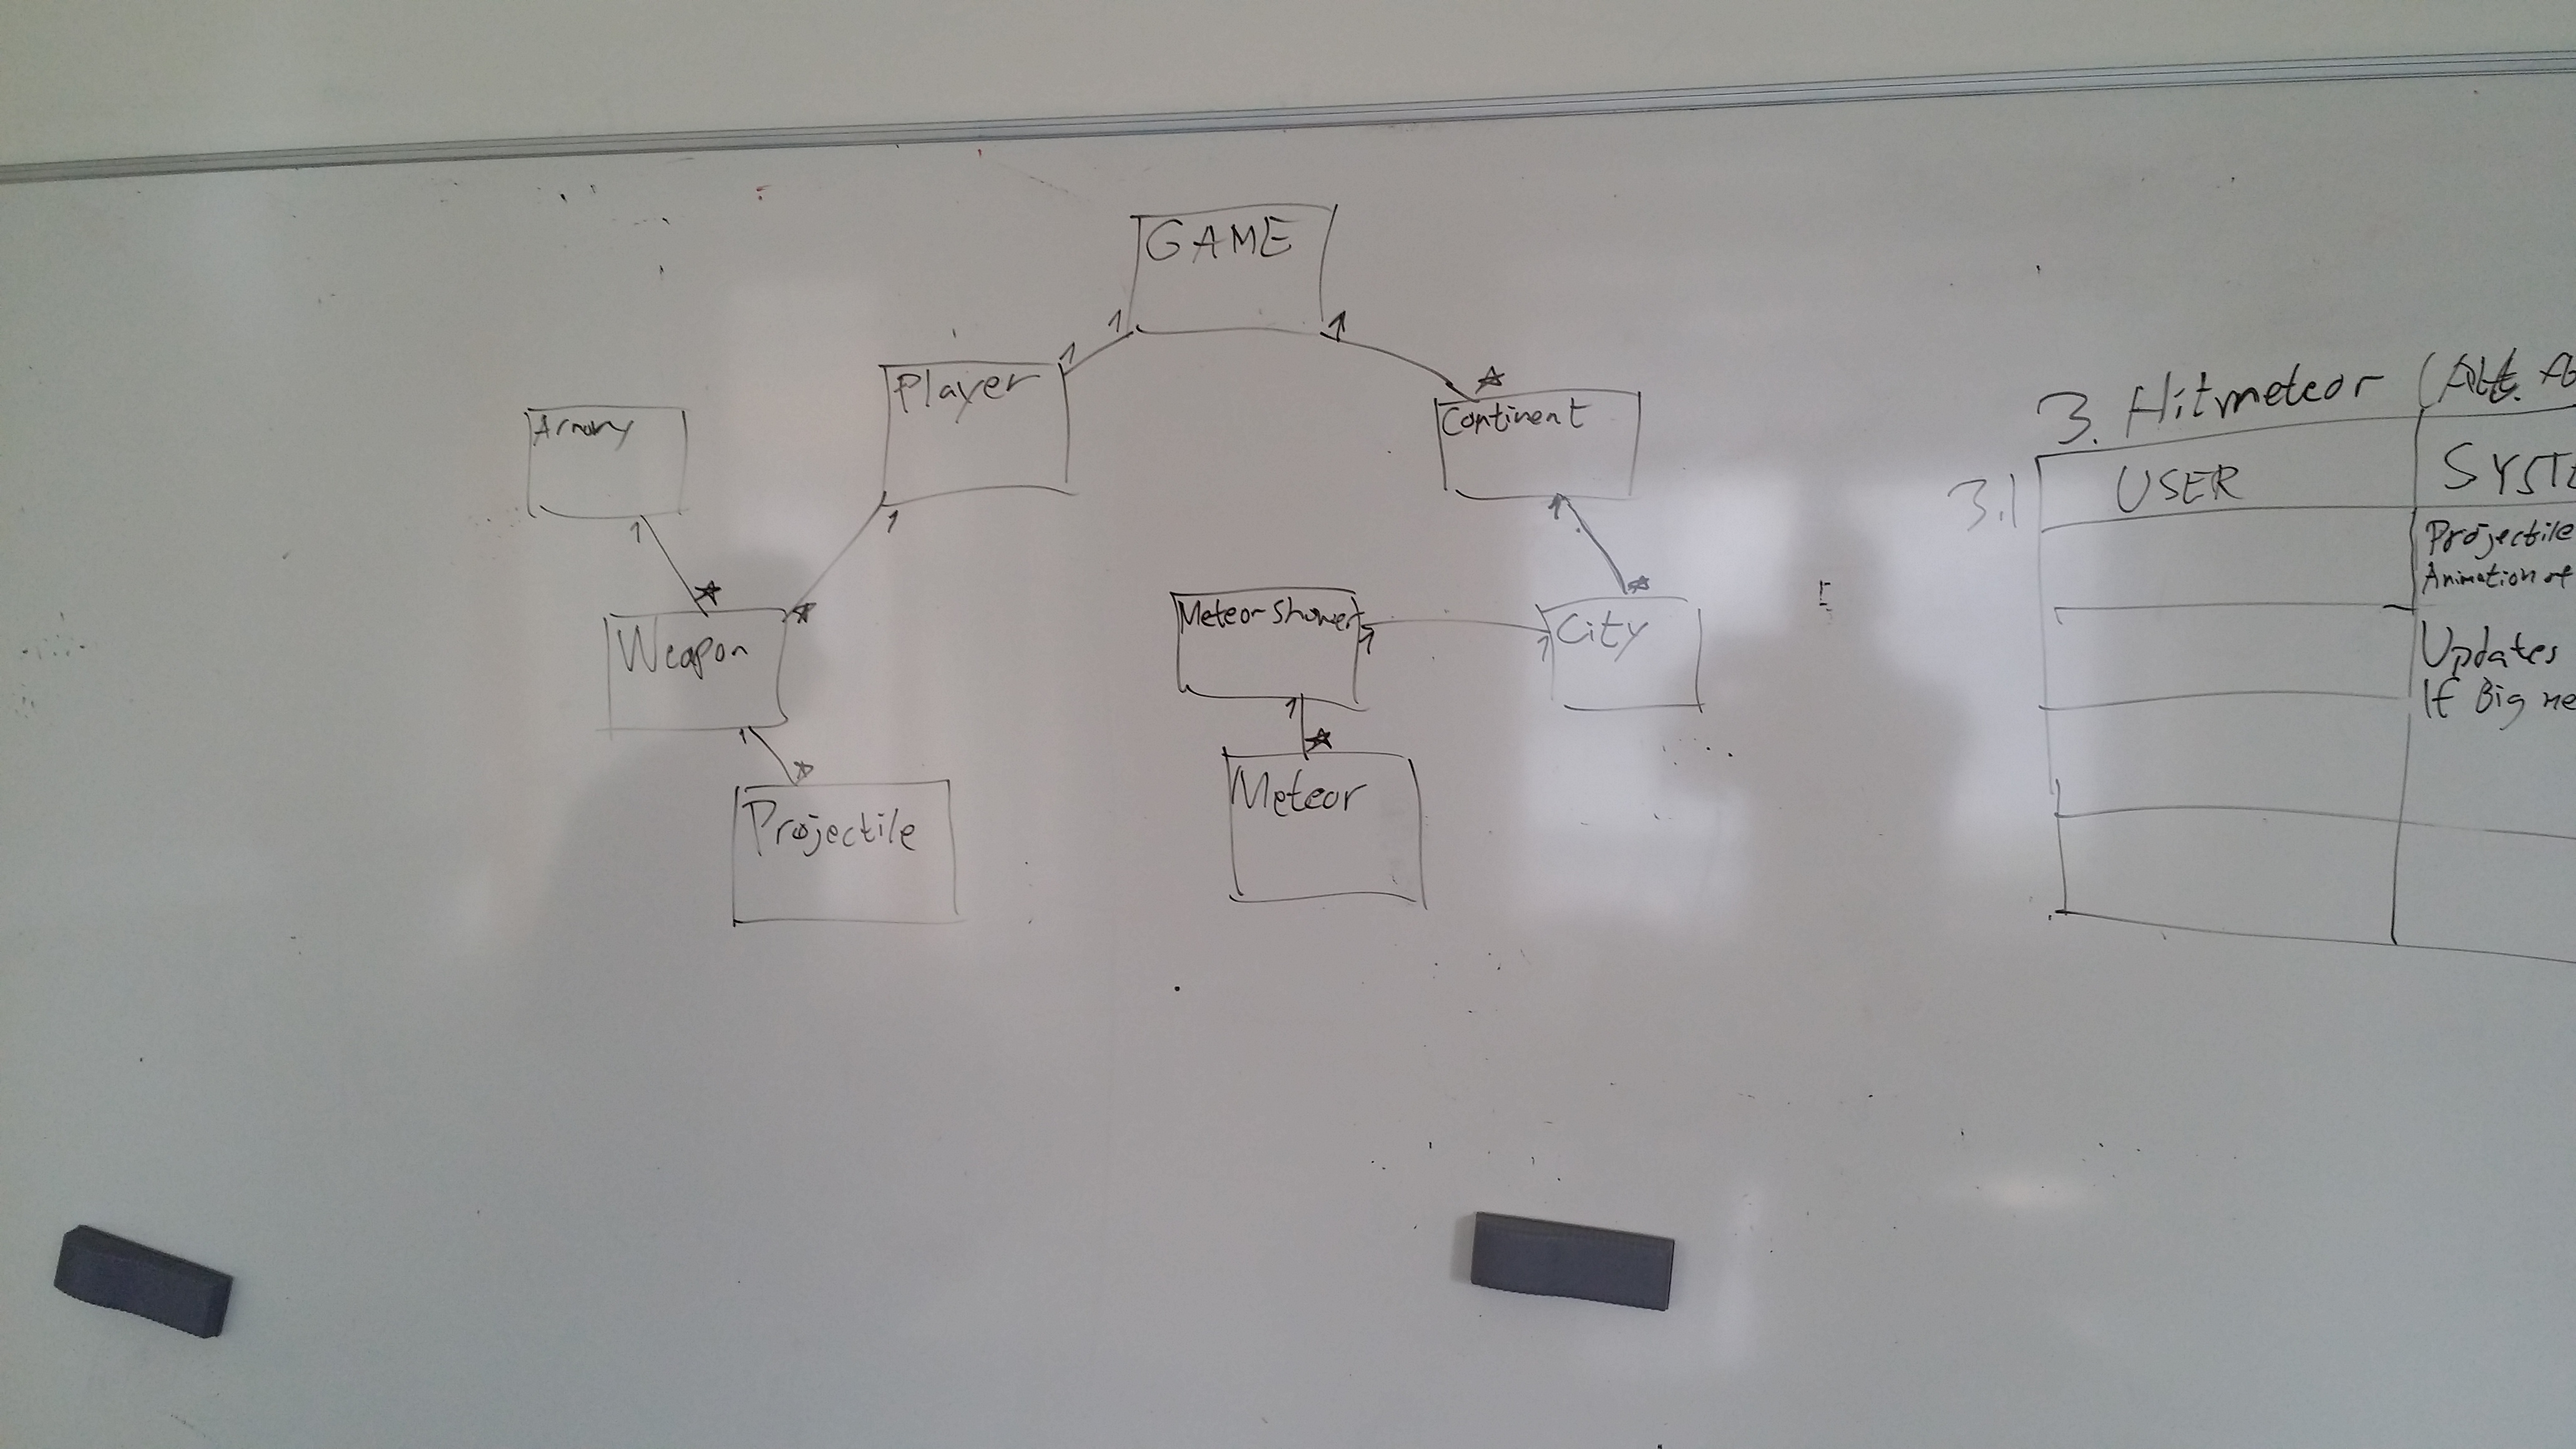 GAME
1
1
1
*
Player
Continent
Armory
1
1
1
*
*
*
Weapon
Meteor Shower
1
1
City
1
*
1
*
Projectile
Meteor
3. Hitmeteor (Alt.
3.1
USER
SYSTE
Projectile
Animation of
Updates
If Big me